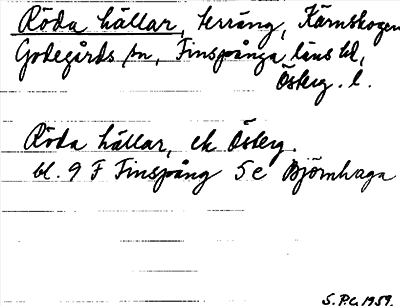 Röda hällar, terräng, Kärnskogen
Godegårds sn, Finspånga läns hd,
Österg. l.
Röda hällar, ek Österg.
bl. 9 F Finspång 5 e Björnhaga
S.P.C. 1959.